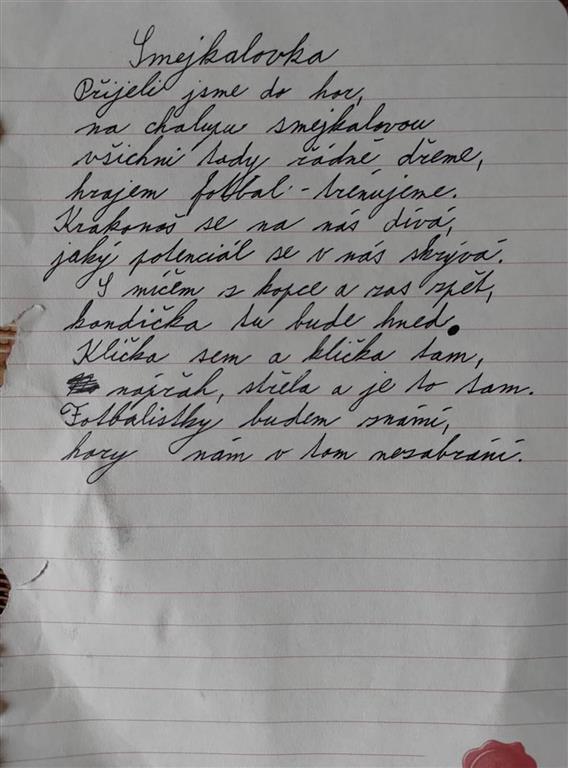 Smejkalovka
Přijeli jsme do hor,
na chalupu smejkalovou
všichni tady řádně dřeme,
hrajem fotbal - trénujeme.
Krakonoš se na nás dívá,
jaký potenciál se v nás skrývá.
S míčem z kopce a zas zpět,
kondička tu bude hned.
Klička sem a klička tam,
nápřah, střela a je to tam.
Fotbalistky budem známí,
hory nám v tom nezabrání.